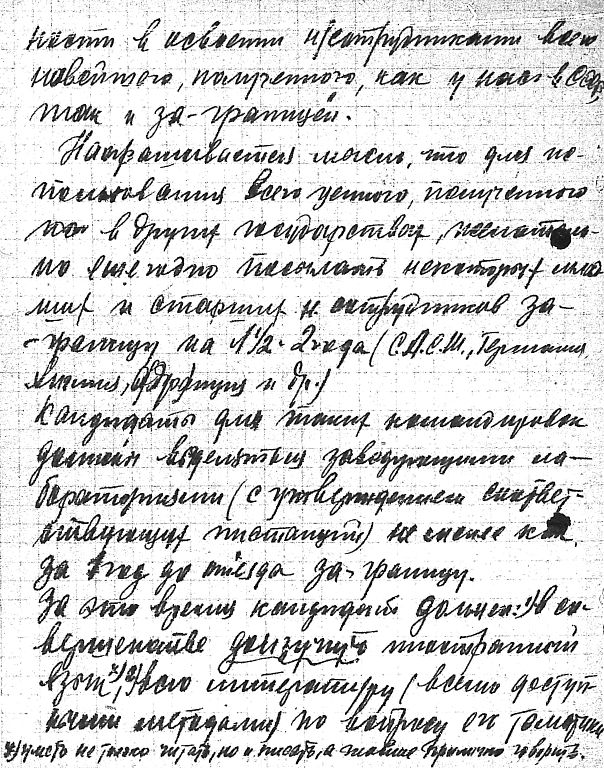 ности в освоении н/сотрудниками всего
новейшего, полученного, как у нас в СССР,
так и за-границей.
Напрашивается мысль, что для ис-
пользования всего ценного, полученного
в других государствах, желатель-
но ежегодно посылать некоторых млад
ших и старших н. сотрудников за-
-границу на 1 1/2 - 2 года (С.А.С.Ш., Германия
Англия, Франция и др.)
Кандидаты для таких командировок
должны выделяться заведующими ла-
бораториями (с утверждением соответ-
ствующих инстанций) не менее как
за год до от'езда за-границу.
За это время кандидат должен: 1) в со-
вершенстве доизучить иностранный
язык x), 2) всю литературу (всеми доступ-
ными методами) по вопросу его тематики
x) уметь не только читать, но и писать, а также прилично говорить.